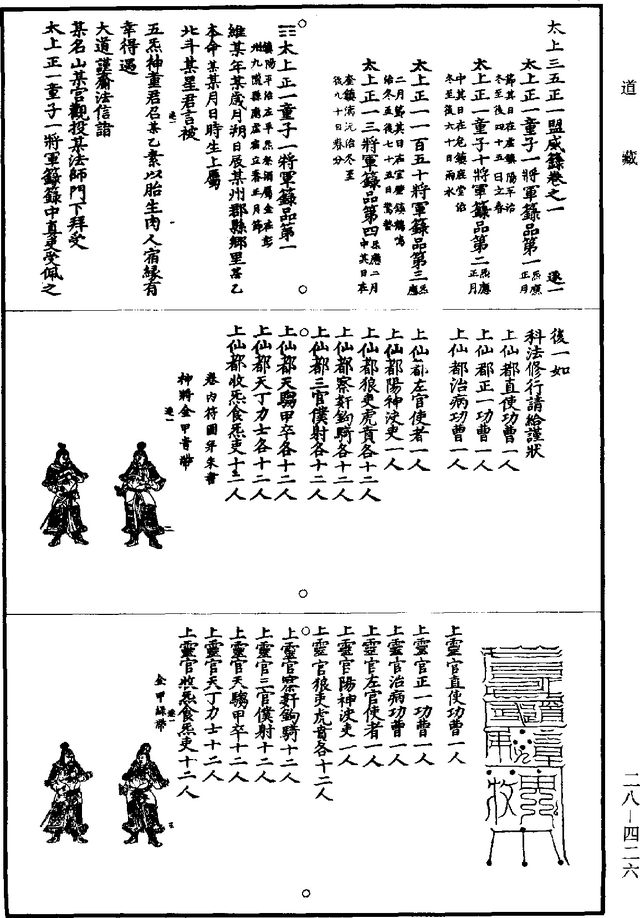 道藏
太上三五正一盟威籙卷之一 逐一
太上正一童子一將軍籙品第一 炁應正月
節其日在虛鎮陽平治
冬至後四十五日立春
太上正一童子十將軍籙品第二 炁應正月
中其日在危鎮鹿堂治
冬至後六十日雨水
太上正一一百五十將軍籙品第三 炁應
二月節其日在室鎮鶴鳴
治冬至後七十五日驚蟄
太上正一三將軍籙品第四 炁應二月中其日在
壁鎮漓沅治冬至
後九十日春分
太上正一童子一將軍籙品第一
維某年某歲月朔日辰某州郡縣鄉里某乙
本命某某月日時生上屬
北斗某星君言被
五炁神童君召某乙素以胎生肉人宿緣有
幸得遇
大道謹齎法信詣
某名山某宮觀投某法師門下拜受
太上正一童子一將軍籙籙中真吏受佩之
後一如
科法修行請給謹狀
上仙都直使功曹一人
上仙都正一功曹一人
上仙都治病功曹一人
上仙都左官使者一人
上仙都陽神決吏一人
上仙都狼吏虎賁各十二人
上仙都察奸鉤騎各十二人
上仙都三官僕射各十二人
上仙都天騶甲卒各十二人
上仙都天丁力士各十二人
上仙都收炁食炁吏十二人
卷內符圖牙朱書
神將金甲青帶
上靈官直使功曹一人
上靈官正一功曹一人
上靈官治病功曹一人
上靈官左官使者一人
上靈官陽神決吏一人
上靈官狼吏虎賁各十二人
上靈官察奸鉤騎十二人
上靈官三官僕射十二人
上靈官天騶甲卒十二人
上靈官天丁力士十二人
上靈官收炁食炁吏十二人
金甲綠帶
二八—四二六